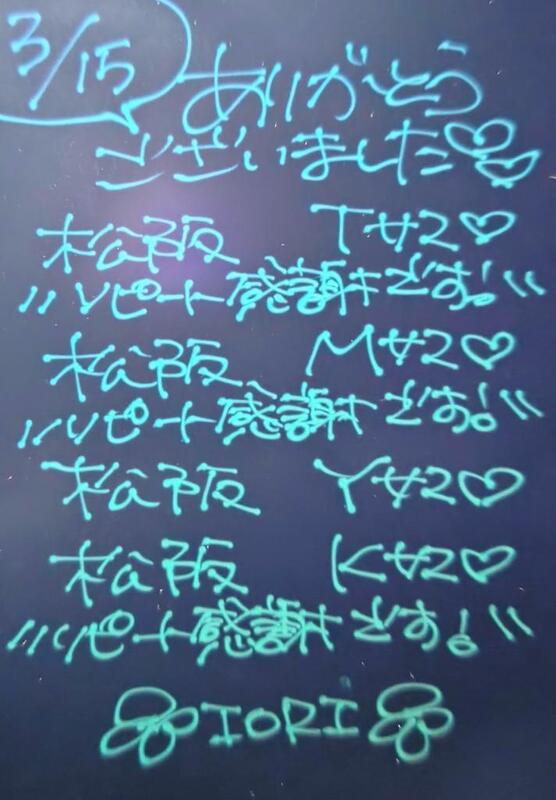 3/15
ありがとう
ございました♡♡
松阪 Tサマ♡
\\リピート感謝です!//
松阪 Mサマ♡
\\リピート感謝です!//
松阪 Yサマ♡
松阪 Kサマ♡
\\リピート感謝です!//
IORI